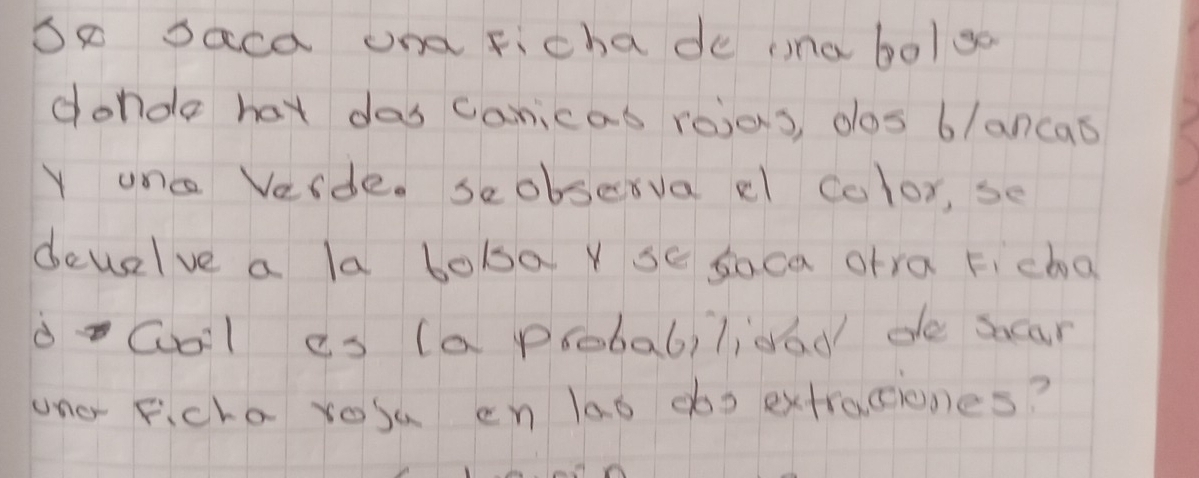 Se saca una ficha de una bolsa
donde hay dos canicas rojas, dos blancas
y una verde. se observa el color, se
devuelve a la bolsa y se saca otra ficha
¿Cuál es la probabilidad de sacar
una ficha roja en las dos extracciones?